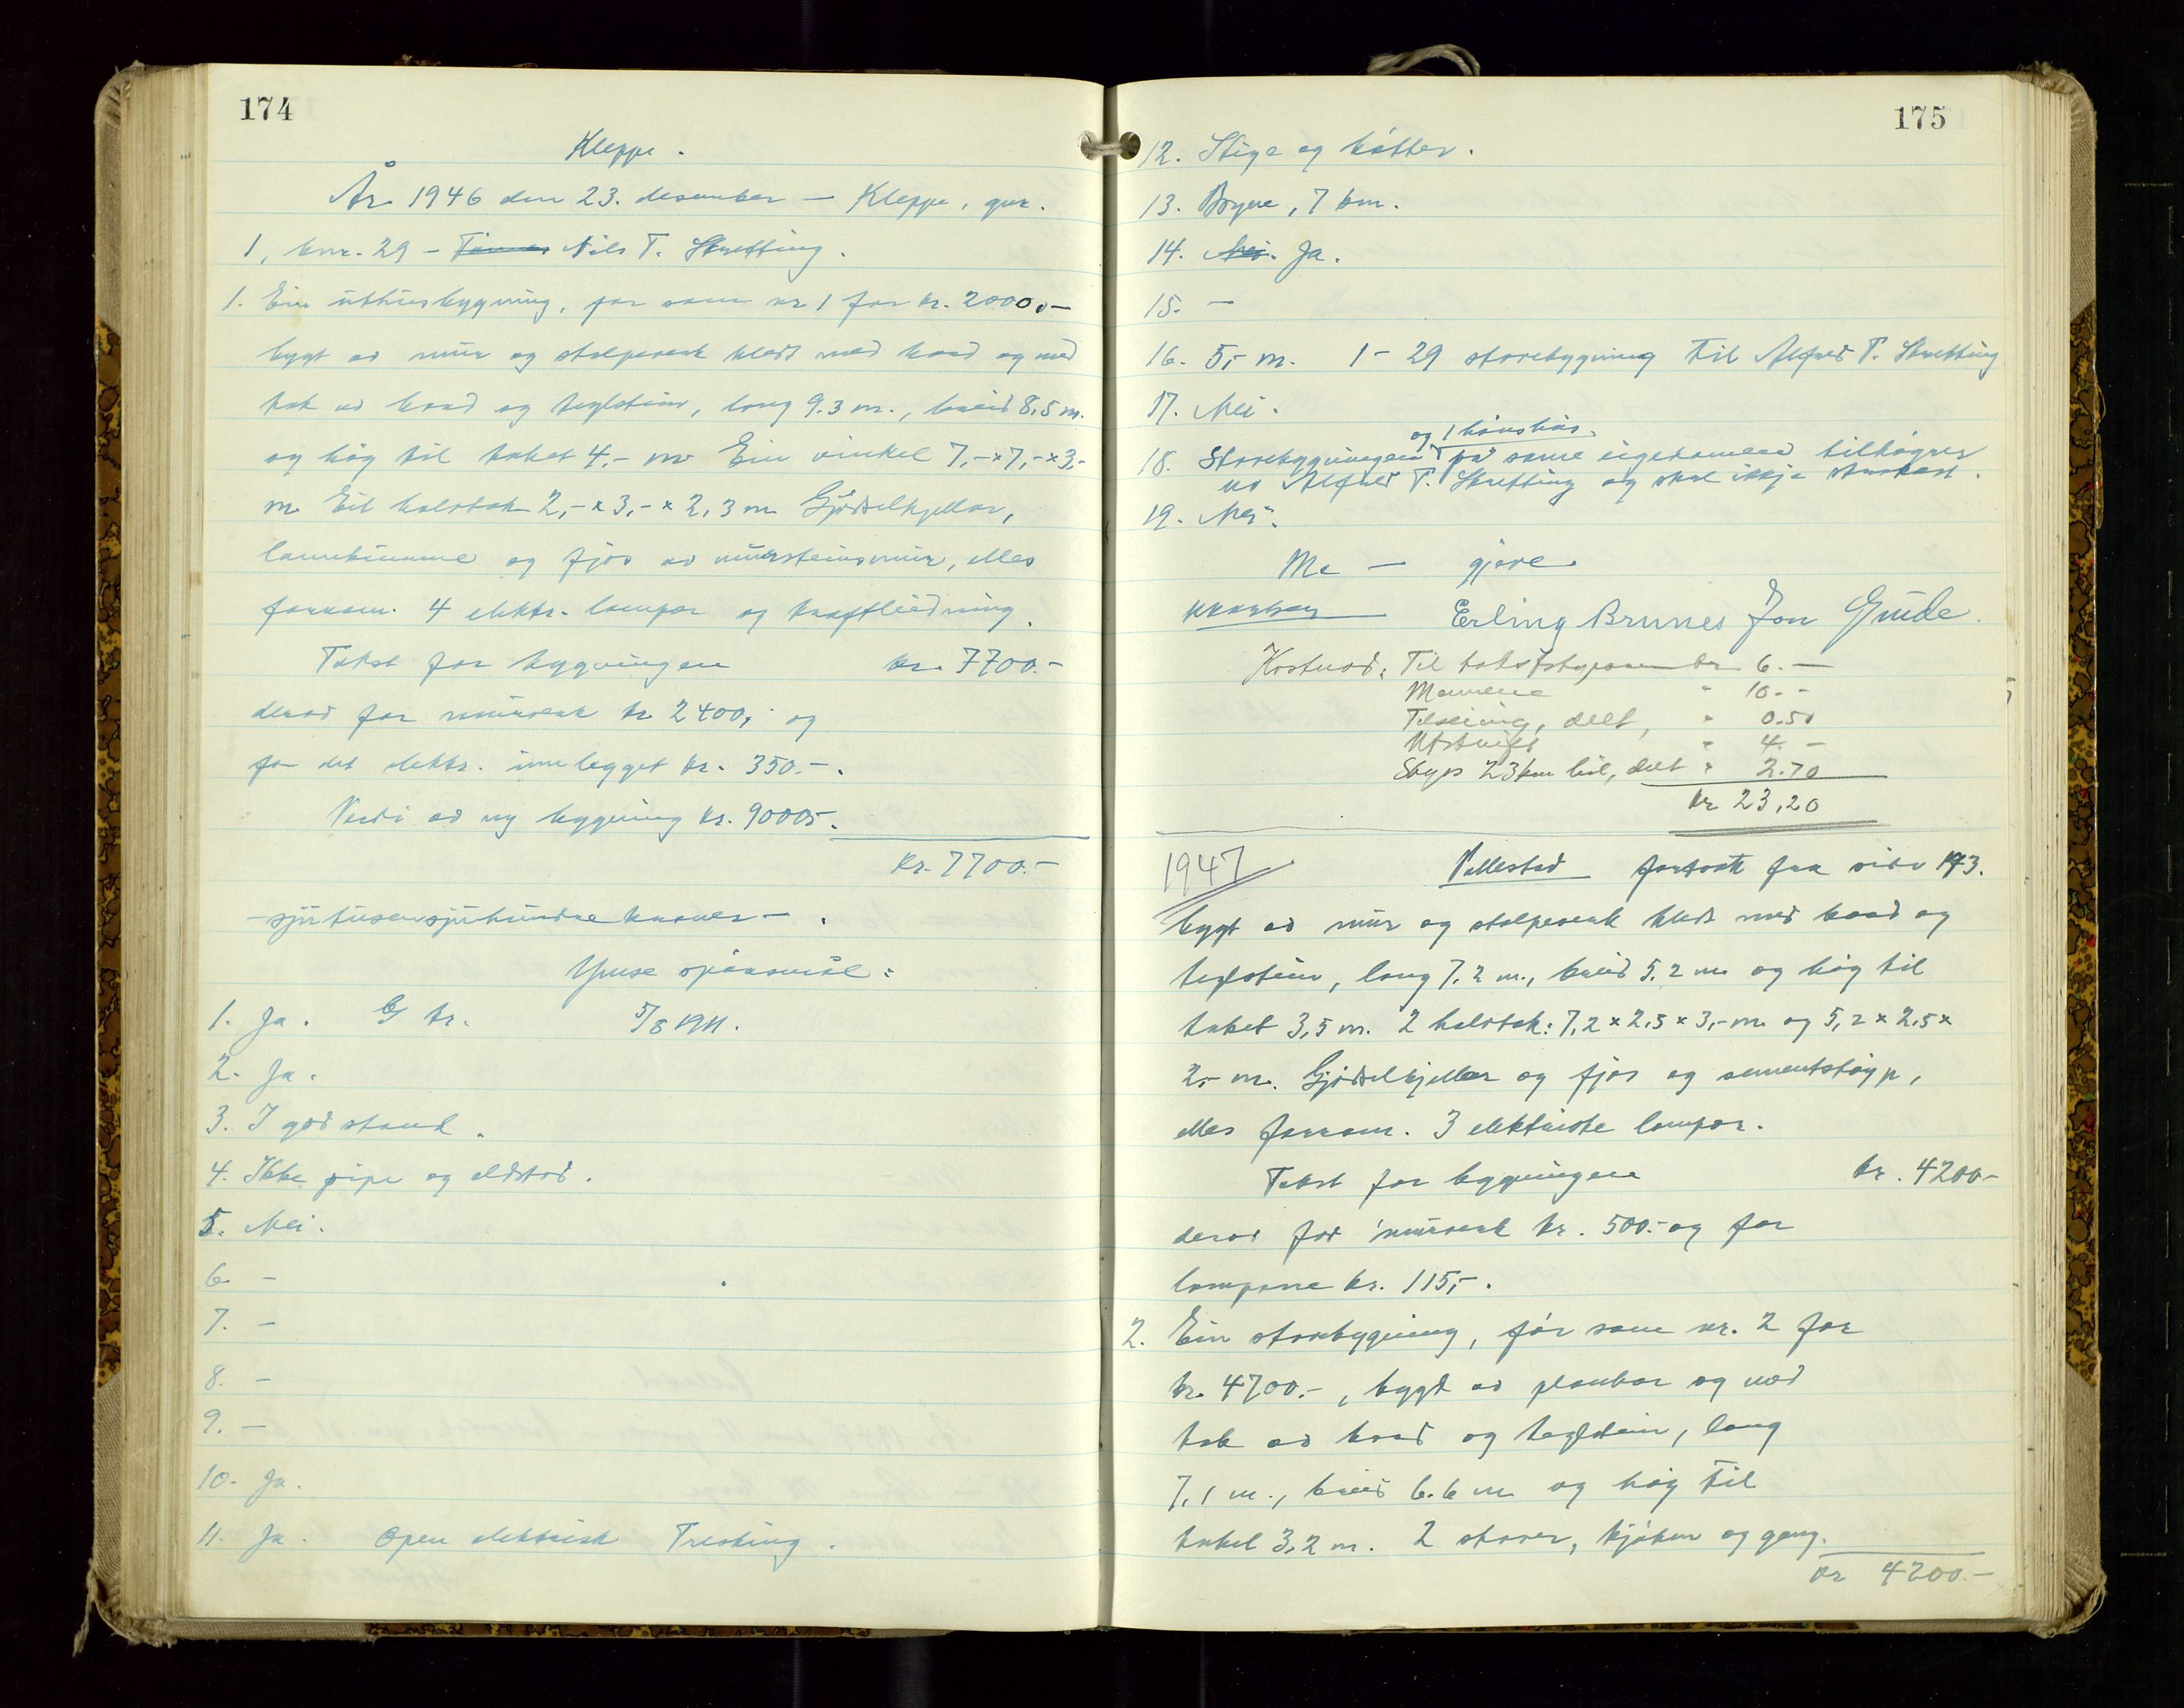 174
Kleppe.
År 1946 den 23. desember — Kleppe, gnr.
1, bnr. 29 - Nils T. Skretting.
1. Ein uthusbygning, før som nr 1 for kr. 2000,-
bygt av mur og stolpeverk kledt med bord og med
tak av bord og teglstein, lang 9.3 m., breid 8,5 m.
og høg til taket 4,- m Ein vinkel 7,- x 7,- x 3,-
m Eit halvtak 2,- x 3,- x 2,3 m Gjødselkjellar,
lannkumme og fjøs av mursteinsmur, elles
farrom. 4 elektr. lampor og kraftleidning.
Takst for bygningen kr. 7700.-
derav for murverk kr 2400,- og
for det elektr. innlegget kr. 350.-.
Verdi av ny bygning kr. 9000,-.
kr. 7700.-
- sjutusensjuhundre kroner - .
Ymse spørsmål:
1. Ja. Bf br. 5/8 1911.
2. Ja.
3. I god stand.
4. Ikke pipe og eldstad.
5. Nei.
6. -
7. -
8. -
9. -
10. Ja.
11. Ja. Open elektrisk Tresking.
175
12. Stige og bøtter.
13. Bryne, 7 km.
14. Nei. Ja.
15. -
16. 5,- m. 1 - 29 stovebygning til Alfred T. Skretting
17. Nei.
og 1 hønshus.
18. Stovebygningen på same eigedomen tilhøyrer
no Alfred T. Skretting og skal ikkje takserast.
19. Nei.
Me — gjøre.
Erling Brunes Jon Gjude.
Kostnad: Til takststyraren kr 6.—
Mennene " 10.-
Tilseiing, delt, " 0.50
Utskrift " 4.-
Skyss 23 km bil, delt " 2.70
kr 23,20
1947
Vallestad fortsatt fra side 173.
bygt av mur og stolpeverk kledt med bord og
teglstein, lang 7.2 m., breid 5.2 m og høg til
taket 3,5 m. 2 halvtak: 7,2 x 2,5 x 3,- m. og 5,2 x 2,5 x
2,- m. Gjødselkjellar og fjøs og sementstøyp,
elles farrom. 3 elektriske lampor.
Takst for bygningen kr. 4200-
derav for murverk kr. 500.- og for
lampone kr. 115,-.
2. Ein stovebygning, før som nr. 2 for
kr. 4700.-, bygd av plankar og med
tak av bord og teglstein, lang
7,1 m., breid 6.6 m og høg til
taket 3,2 m. 2 stover, kjøken og gang.
kr 4200.-